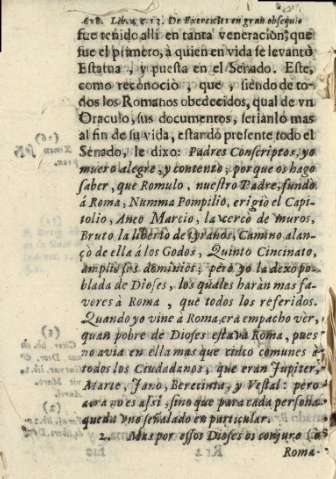 628. Lib. 4. c. 12. De Exercicios en gran obsequio
fue tenido alli en tanta veneracion, que
fue el primero, à quien en vida se levantò
Estatua, y puesta en el Senado. Este,
como reconociò, que, siendo de to-
dos los Romanos obedecidos, qual de vn
Oraculo, sus documentos, serianlo mas
al fin de su vida, estandõ presente todo el
Senado, le dixo: Padres Conscriptos, yo
muero alegre, y contento, porque os hago
saber, que Romulo, nuestro Padre, fundò
à Roma, Numma Pompilio, erigiò el Capi-
tolio, Anco Marcio, la cercò de muros,
Bruto la libertò de tyranos, Camino alan-
çò de ella à los Godos, Quinto Cincinato,
ampliò sus dominios; pero yo la dexo po-
blada de Dioses, los quales haràn mas fa-
vores à Roma, que todos los referidos.
Quando yo vine à Roma, era empacho ver,
quan pobre de Dioses estava Roma, pues
no avia en ella mas que cinco comunes à
todos los Ciudadanos, que eran Jupiter,
Marte, Jano, Berecinta, y Vesta: pero
aora no es assi, sino que para cada persona
quedò vno señalado en particular.
2. Mas por essos Dioses os conjuro (ò
Roma-